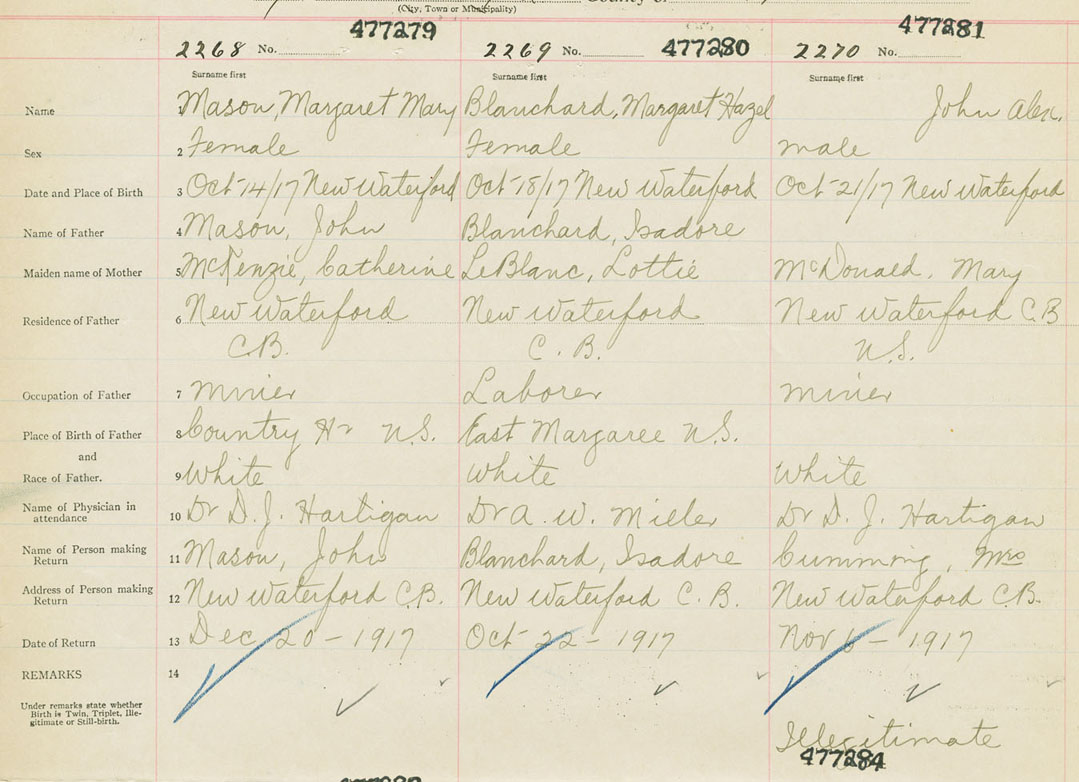 (City, Town or Municipality)
County of
477279 477280 477281
2268 No. 2269 No. 2270 No.
Surname first Surname first Surname first
Name 1 Mason, Margaret Mary Blanchard, Margaret Hazel John Alex.
Sex 2 Female Female male
Date and Place of Birth 3 Oct 14/17 New Waterford Oct 18/17 New Waterford Oct 21/17 New Waterford
Name of Father 4 Mason, John Blanchard, Isadore
Maiden name of Mother 5 McKenzie, Catherine LeBlanc, Lottie McDonald, Mary
Residence of Father 6 New Waterford New Waterford New Waterford C.B
C.B. C. B. N.S.
Occupation of Father 7 Miner Laborer Miner
Place of Birth of Father 8 Country Hr N.S. East Margaree N.S.
and
Race of Father. 9 White White White
Name of Physician in
attendance 10 Dr D. J. Hartigan Dr A. W. Miller Dr D. J. Hartigan
Name of Person making
Return 11 Mason, John Blanchard, Isadore Cumming, Mrs
Address of Person making
Return 12 New Waterford C.B. New Waterford C. B. New Waterford C.B.
Date of Return 13 Dec 20 - 1917 Oct 22 - 1917 Nov 6 - 1917
REMARKS 14
Under remarks state whether
Birth is Twin, Triplet, Ille-
gitimate or Still-birth.
Illegitimate
477284